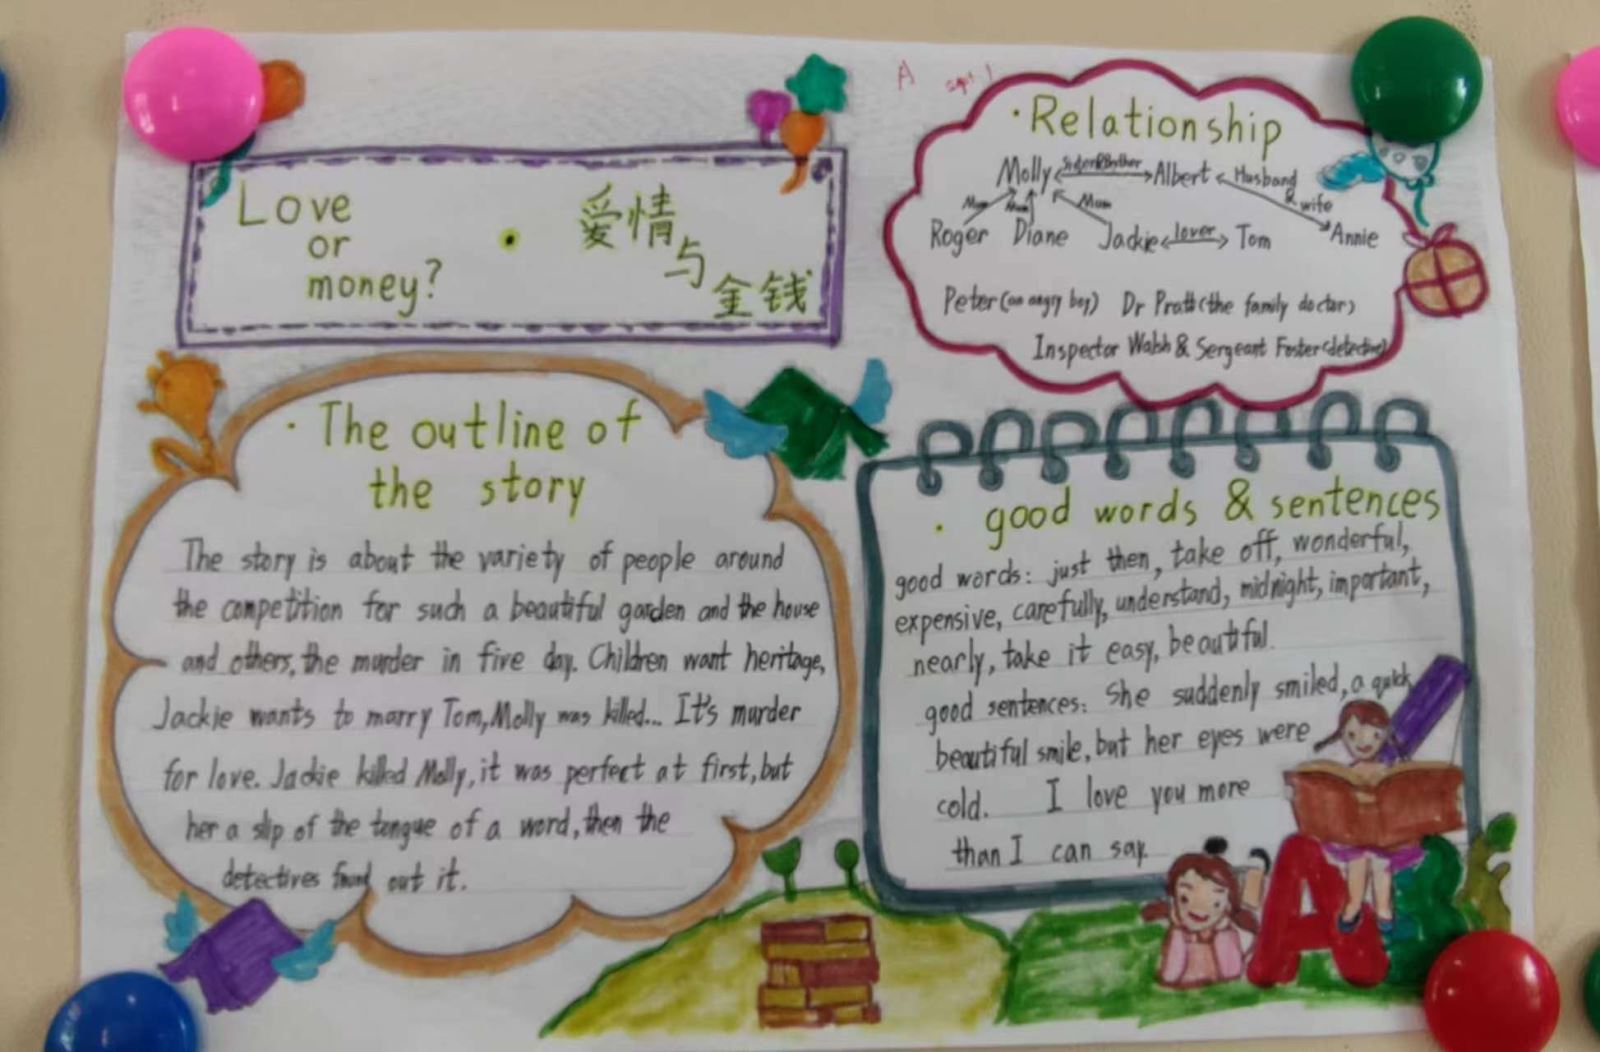 Love
or
money?
爱情
与
金钱
A sept. 1
· Relationship
Molly Sister&Brother Albert Husband
& wife
Mum Mum Mum
Roger Diane Jackie lover Tom Annie
Peter (an angry boy) Dr Pratt (the family doctor)
Inspector Walsh & Sergeant Foster (detective)
· The outline of
the story
The story is about the variety of people around
the competition for such a beautiful garden and the house
and others, the murder in five day. Children want heritage,
Jackie wants to marry Tom, Molly was killed... It's murder
for love. Jackie killed Molly, it was perfect at first, but
her a slip of the tongue of a word, then the
detectives found out it.
· good words & sentences
good words: just then, take off, wonderful,
expensive, carefully, understand, midnight, important,
nearly, take it easy, beautiful.
good sentences: She suddenly smiled, a quick,
beautiful smile, but her eyes were
cold. I love you more
than I can say.
A